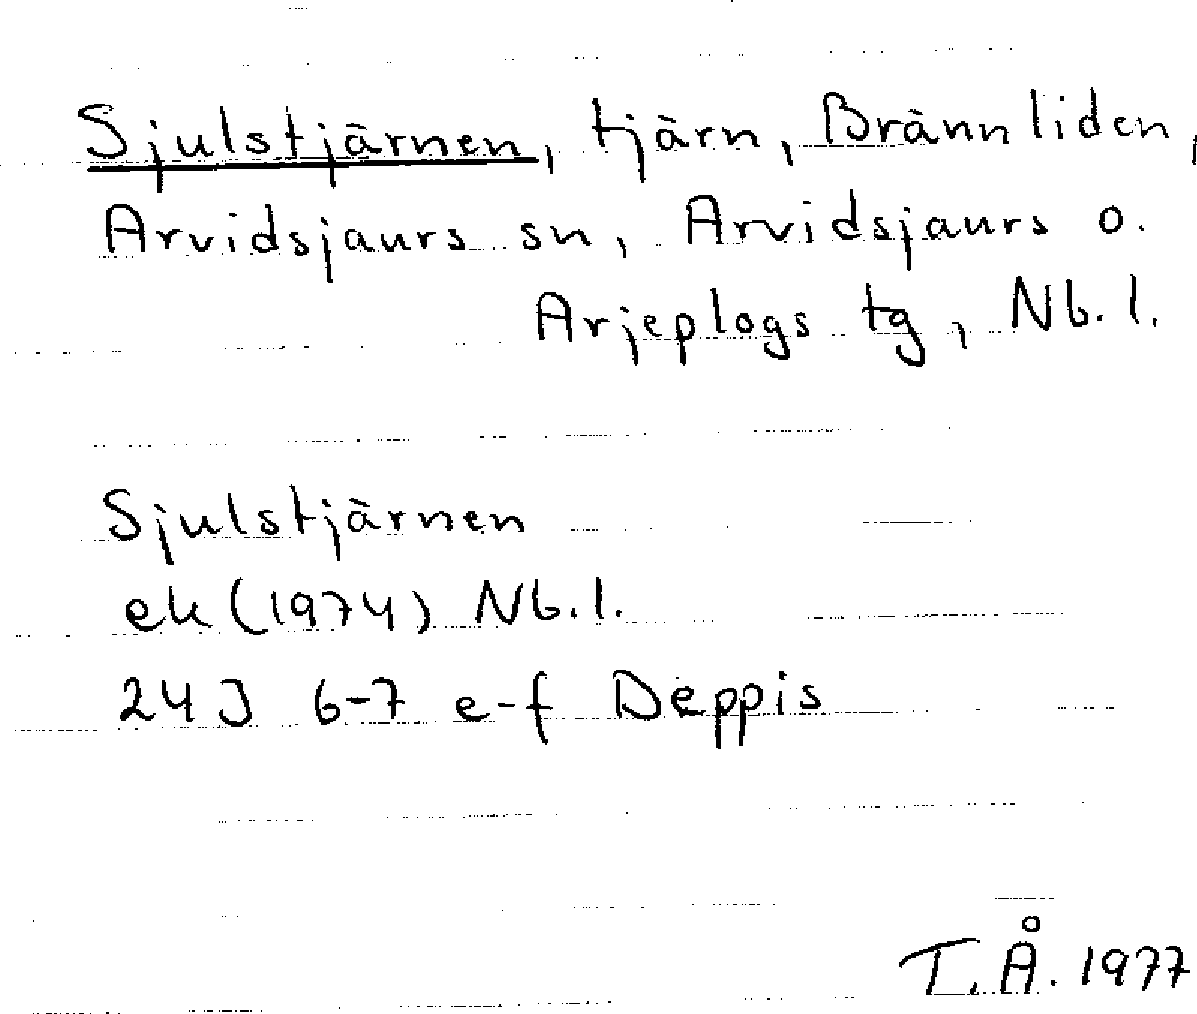 Sjulstjärnen, tjärn, Brännliden,
Arvidsjaurs sn, Arvidsjaurs o.
Arjeplogs tg, Nb. l.
Sjulstjärnen
ek (1974) Nb. l.
24J 6-7 e-f Deppis
T. Å. 1977